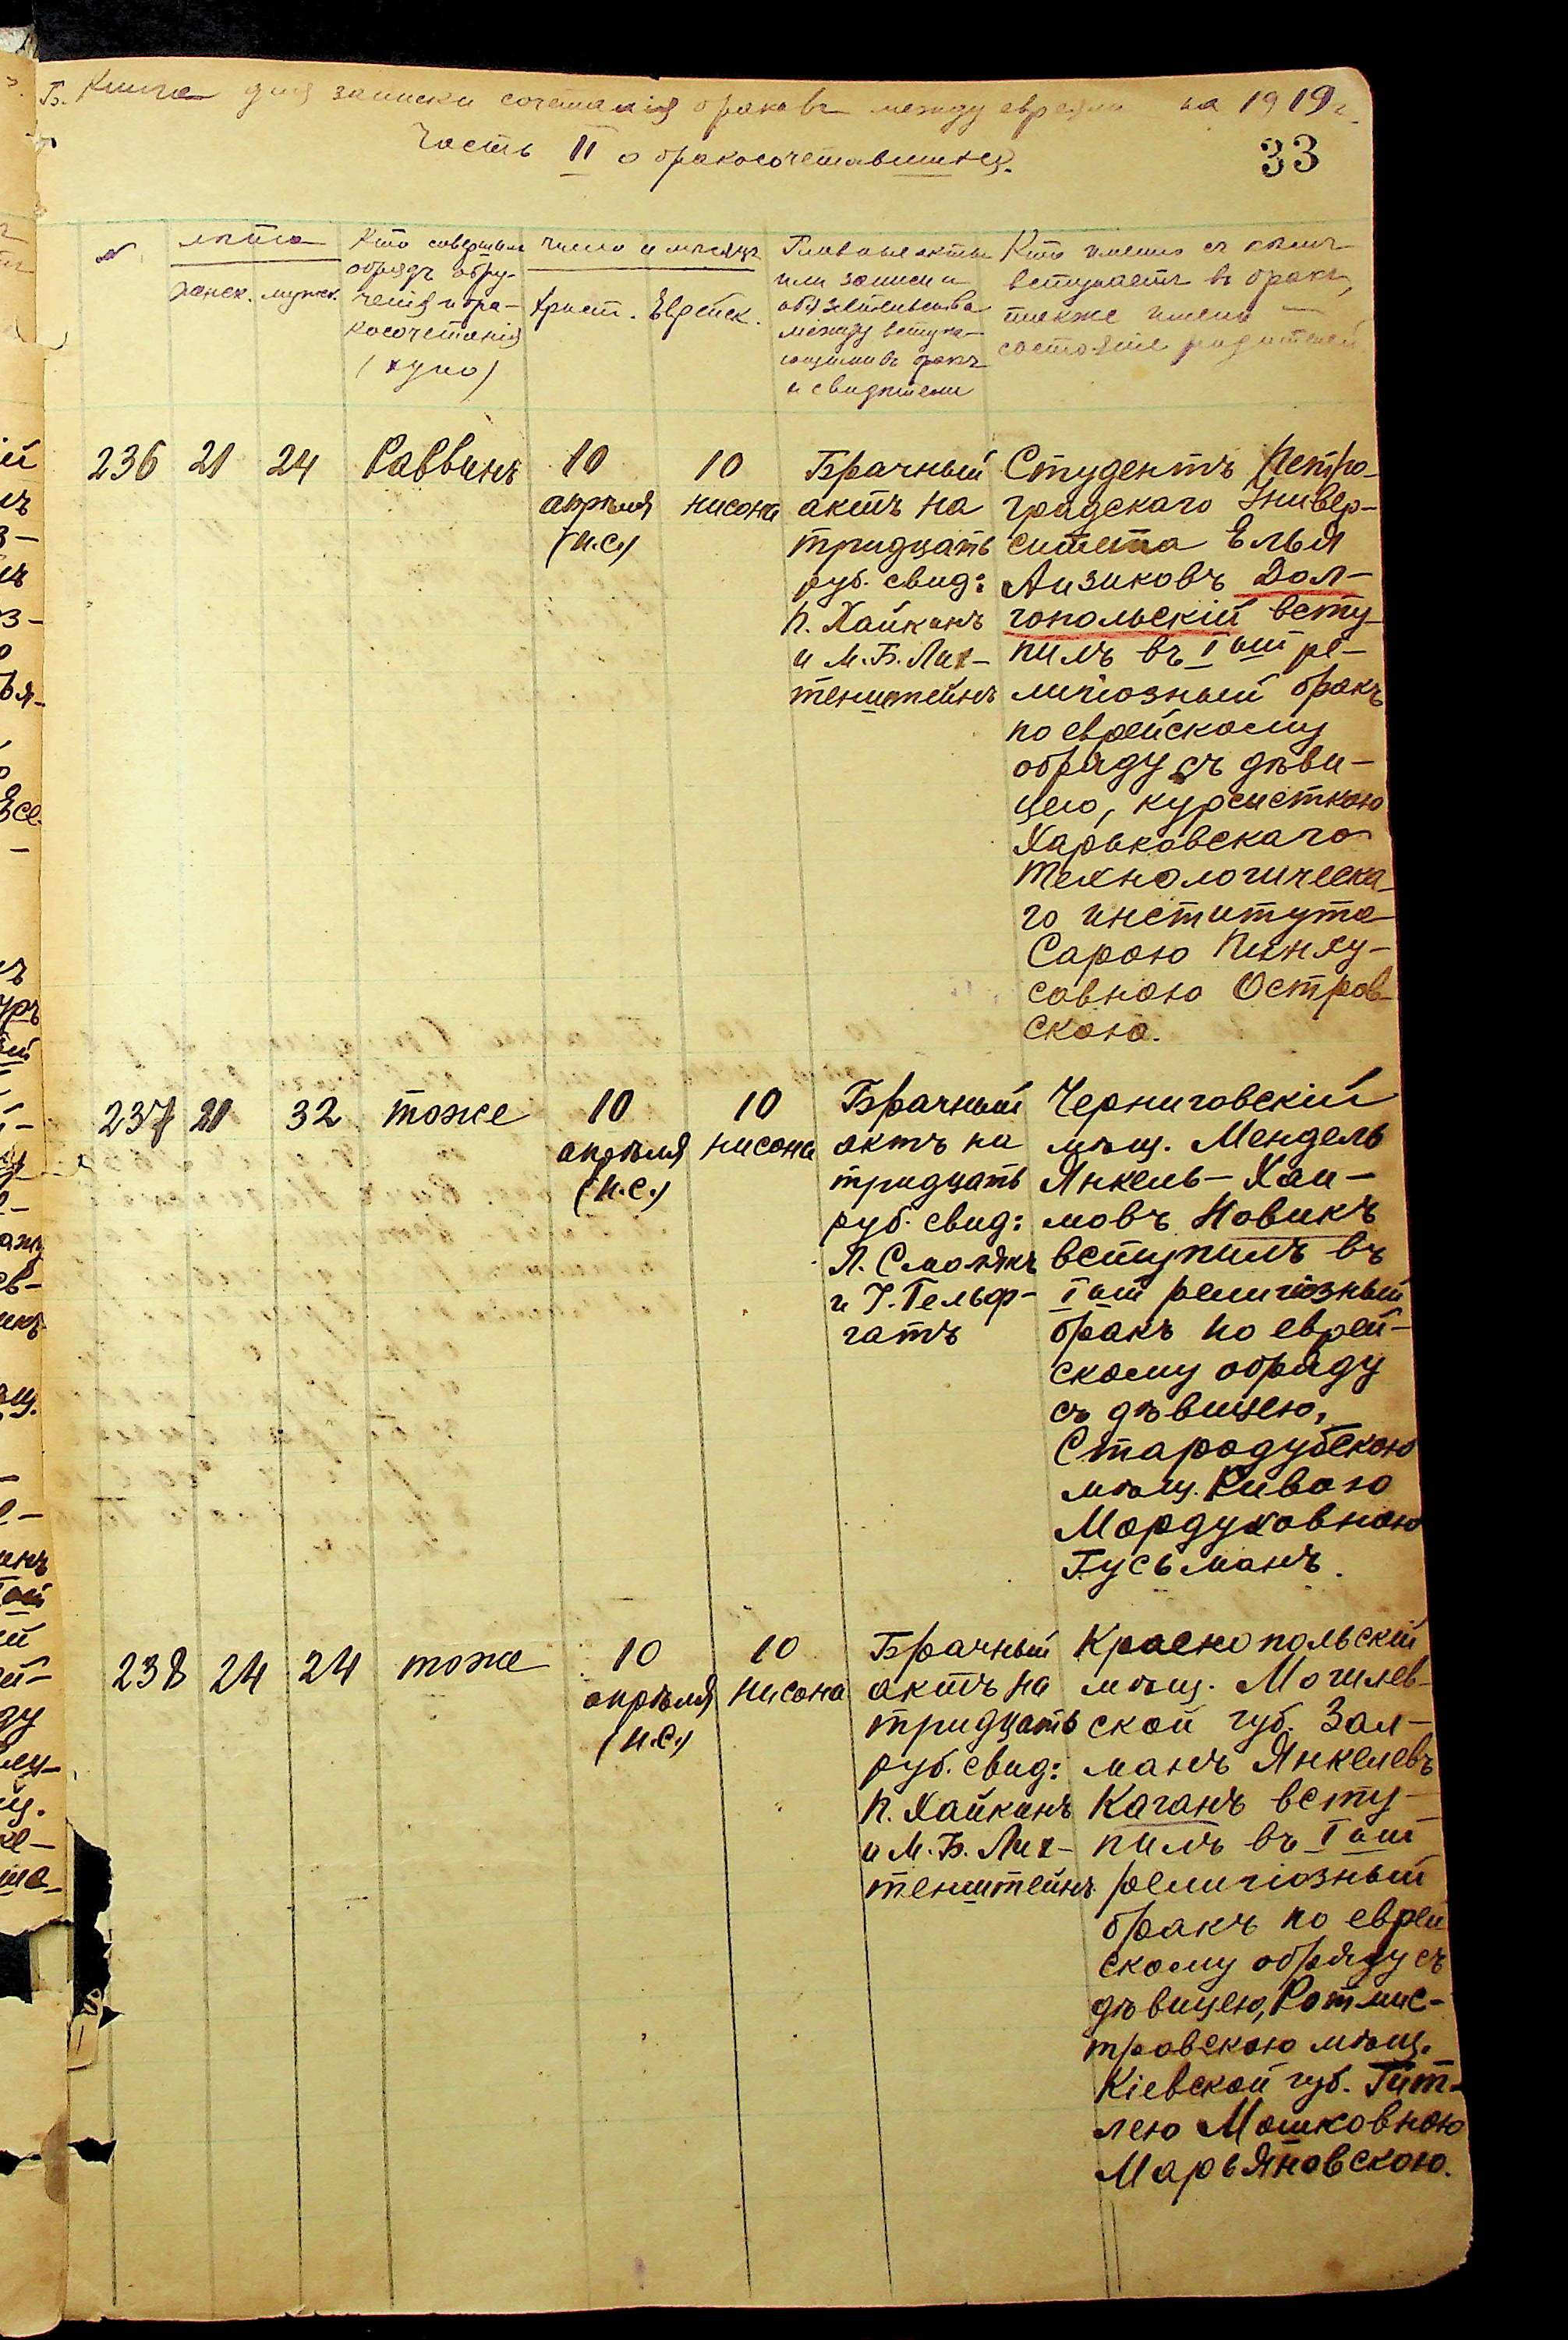 Книга для записки сочетанія браковъ между евреями на 1919 г.
Часть II о бракосочетавшихся.
33
№
лѣта
женск. мужск.
Кто совершал
обрядъ обру-
ченія и бра-
косочетанія
(хупо)
число и мѣсяцъ
Христ. Еврейск.
Главные акты
или записи и
обязательства
между вступа-
ющими въ бракъ
и свидѣтели
Кто именно съ кѣмъ
вступаетъ въ бракъ,
также имена
состояніе родителей.
236 21 24 Раввинъ
10
апрѣля
(н.с.)
10
нисона
Брачный
актъ на
тридцать
руб. свид:
П. Хайкинъ
и М.Б. Лих-
тенштейнъ
Студентъ Петро-
градскаго Универ-
ситета Елья
Аизиковъ Дол-
гопольскій всту
пилъ въ I ый ре-
лигіозный бракъ
по еврейскому
обряду съ дѣви-
цею, курсисткою
Харьковскаго
Технологическа
го института
Сарою Пинху-
совною Остров
скою.
237 21 32 тоже
10
апрѣля
(н.с.)
10
нисона
Брачный
актъ на
тридцать
руб. свид:
Л. Смолякъ
и І. Гельф-
гатъ
Черниговскій
мѣщ. Мендель
Янкель-Хаи-
мовъ Новикъ
вступилъ въ
I ый религіозный
бракъ по еврей-
скому обряду
съ дѣвицею,
Стародубскою
мѣщ. Ривою
Мордуховною
Гусьманъ.
238 24 24 тоже
10
апрѣля
(н.с.)
10
нисона
Брачный
актъ на
тридцать
руб. свид:
П. Хайкинъ
и М.Б. Лих-
тенштейнъ
Краснопольскій
мѣщ. Могилев-
ской губ. Зал-
манъ Янкелевъ
Каганъ всту-
пилъ въ I ый
религіозный
бракъ по еврей
скому обряду съ
дѣвицею, Ротмис-
тровскою мѣщ.
Кіевской губ. Гит-
лею Мошковною
Марьяновскою.